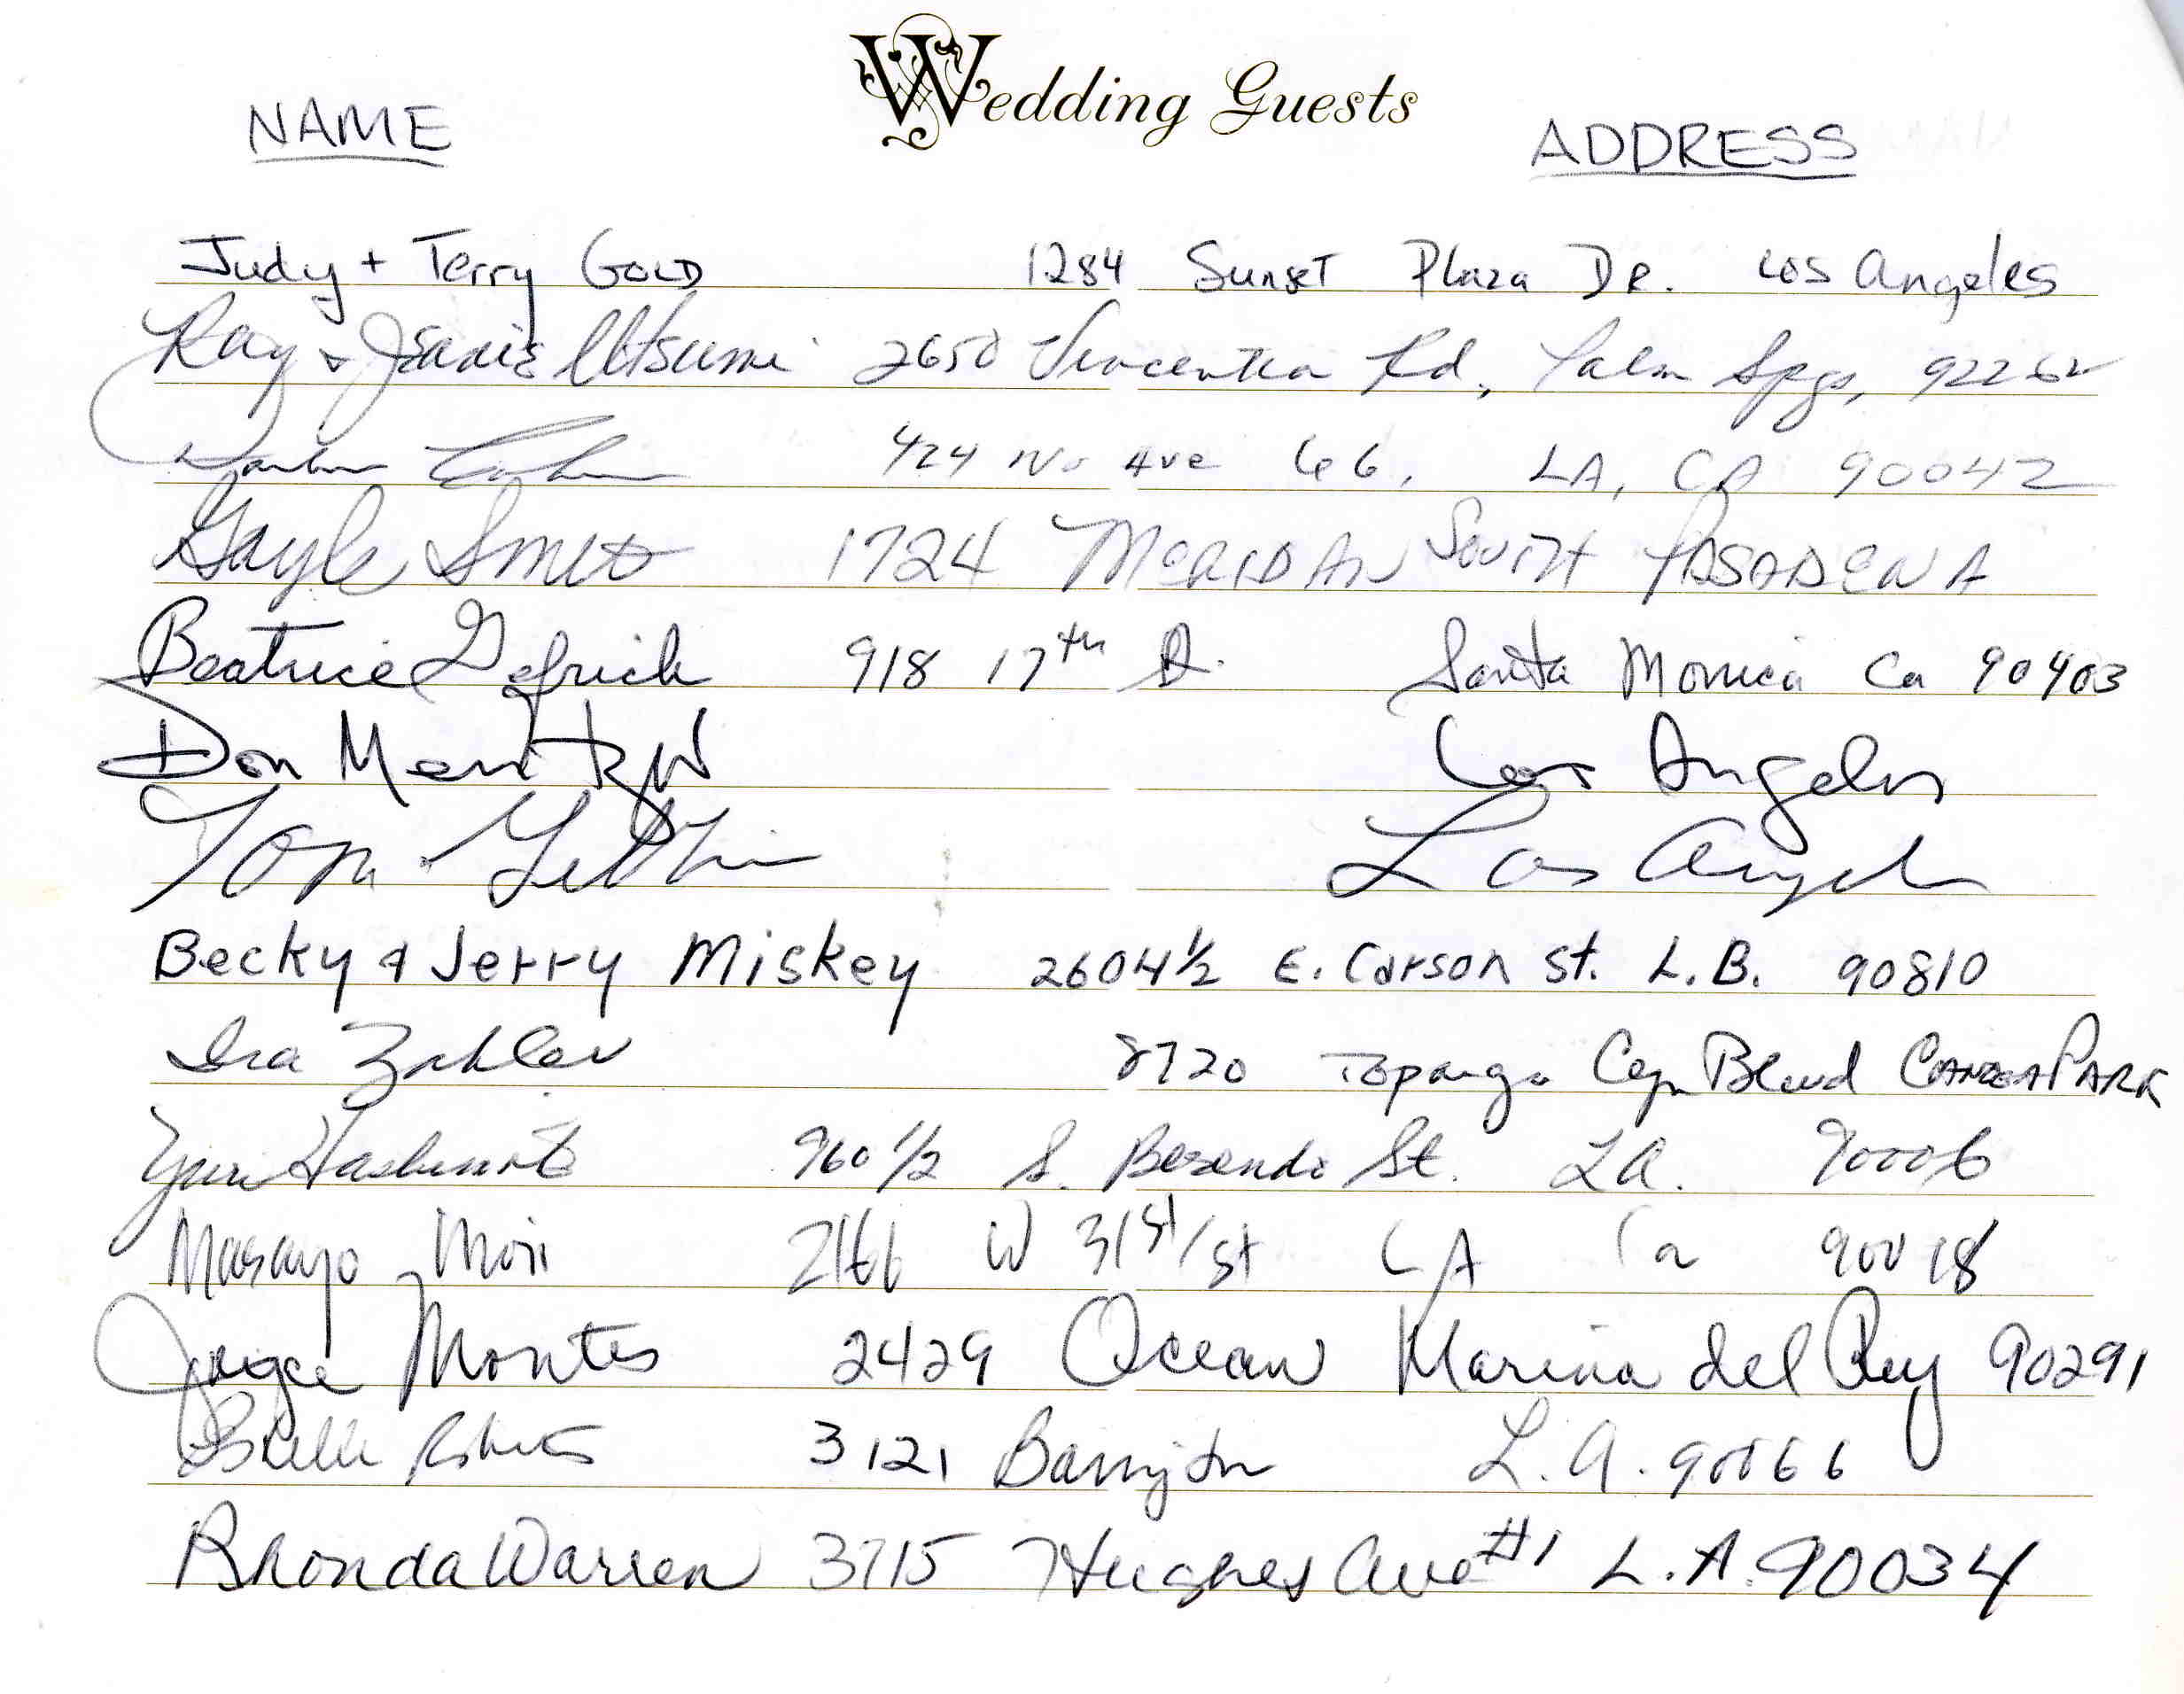 Wedding Guests
NAME ADDRESS
Judy + Terry GOLD 1284 Sunset Plaza DR. Los Angeles
Ray & Janis Utsumi 2650 Vincentia Rd, Palm Spgs, 92262
424 No Ave 66, LA, CA 90042
Gayle 1724 MERIDIAN SOUTH PASADENA
Beatrice 918 17th St. Santa Monica Ca 90403
Don Los Angeles
Tom Los Angeles
Becky & Jerry Miskey 2604 1/2 E. Carson St. L.B. 90810
Ira Zahler 8720 Topanga Cyn Blvd CANOGA PARK
960 1/2 S. Berendo St. LA. 90006
Masayo Mori 2166 W 31st/st LA Ca 90018
Joyce Montes 2429 Ocean Marina del Rey 90291
Estelle Roberts 3121 Barrington L.A. 90066
Rhonda Warren 3715 Hughes Ave #1 L.A. 90034